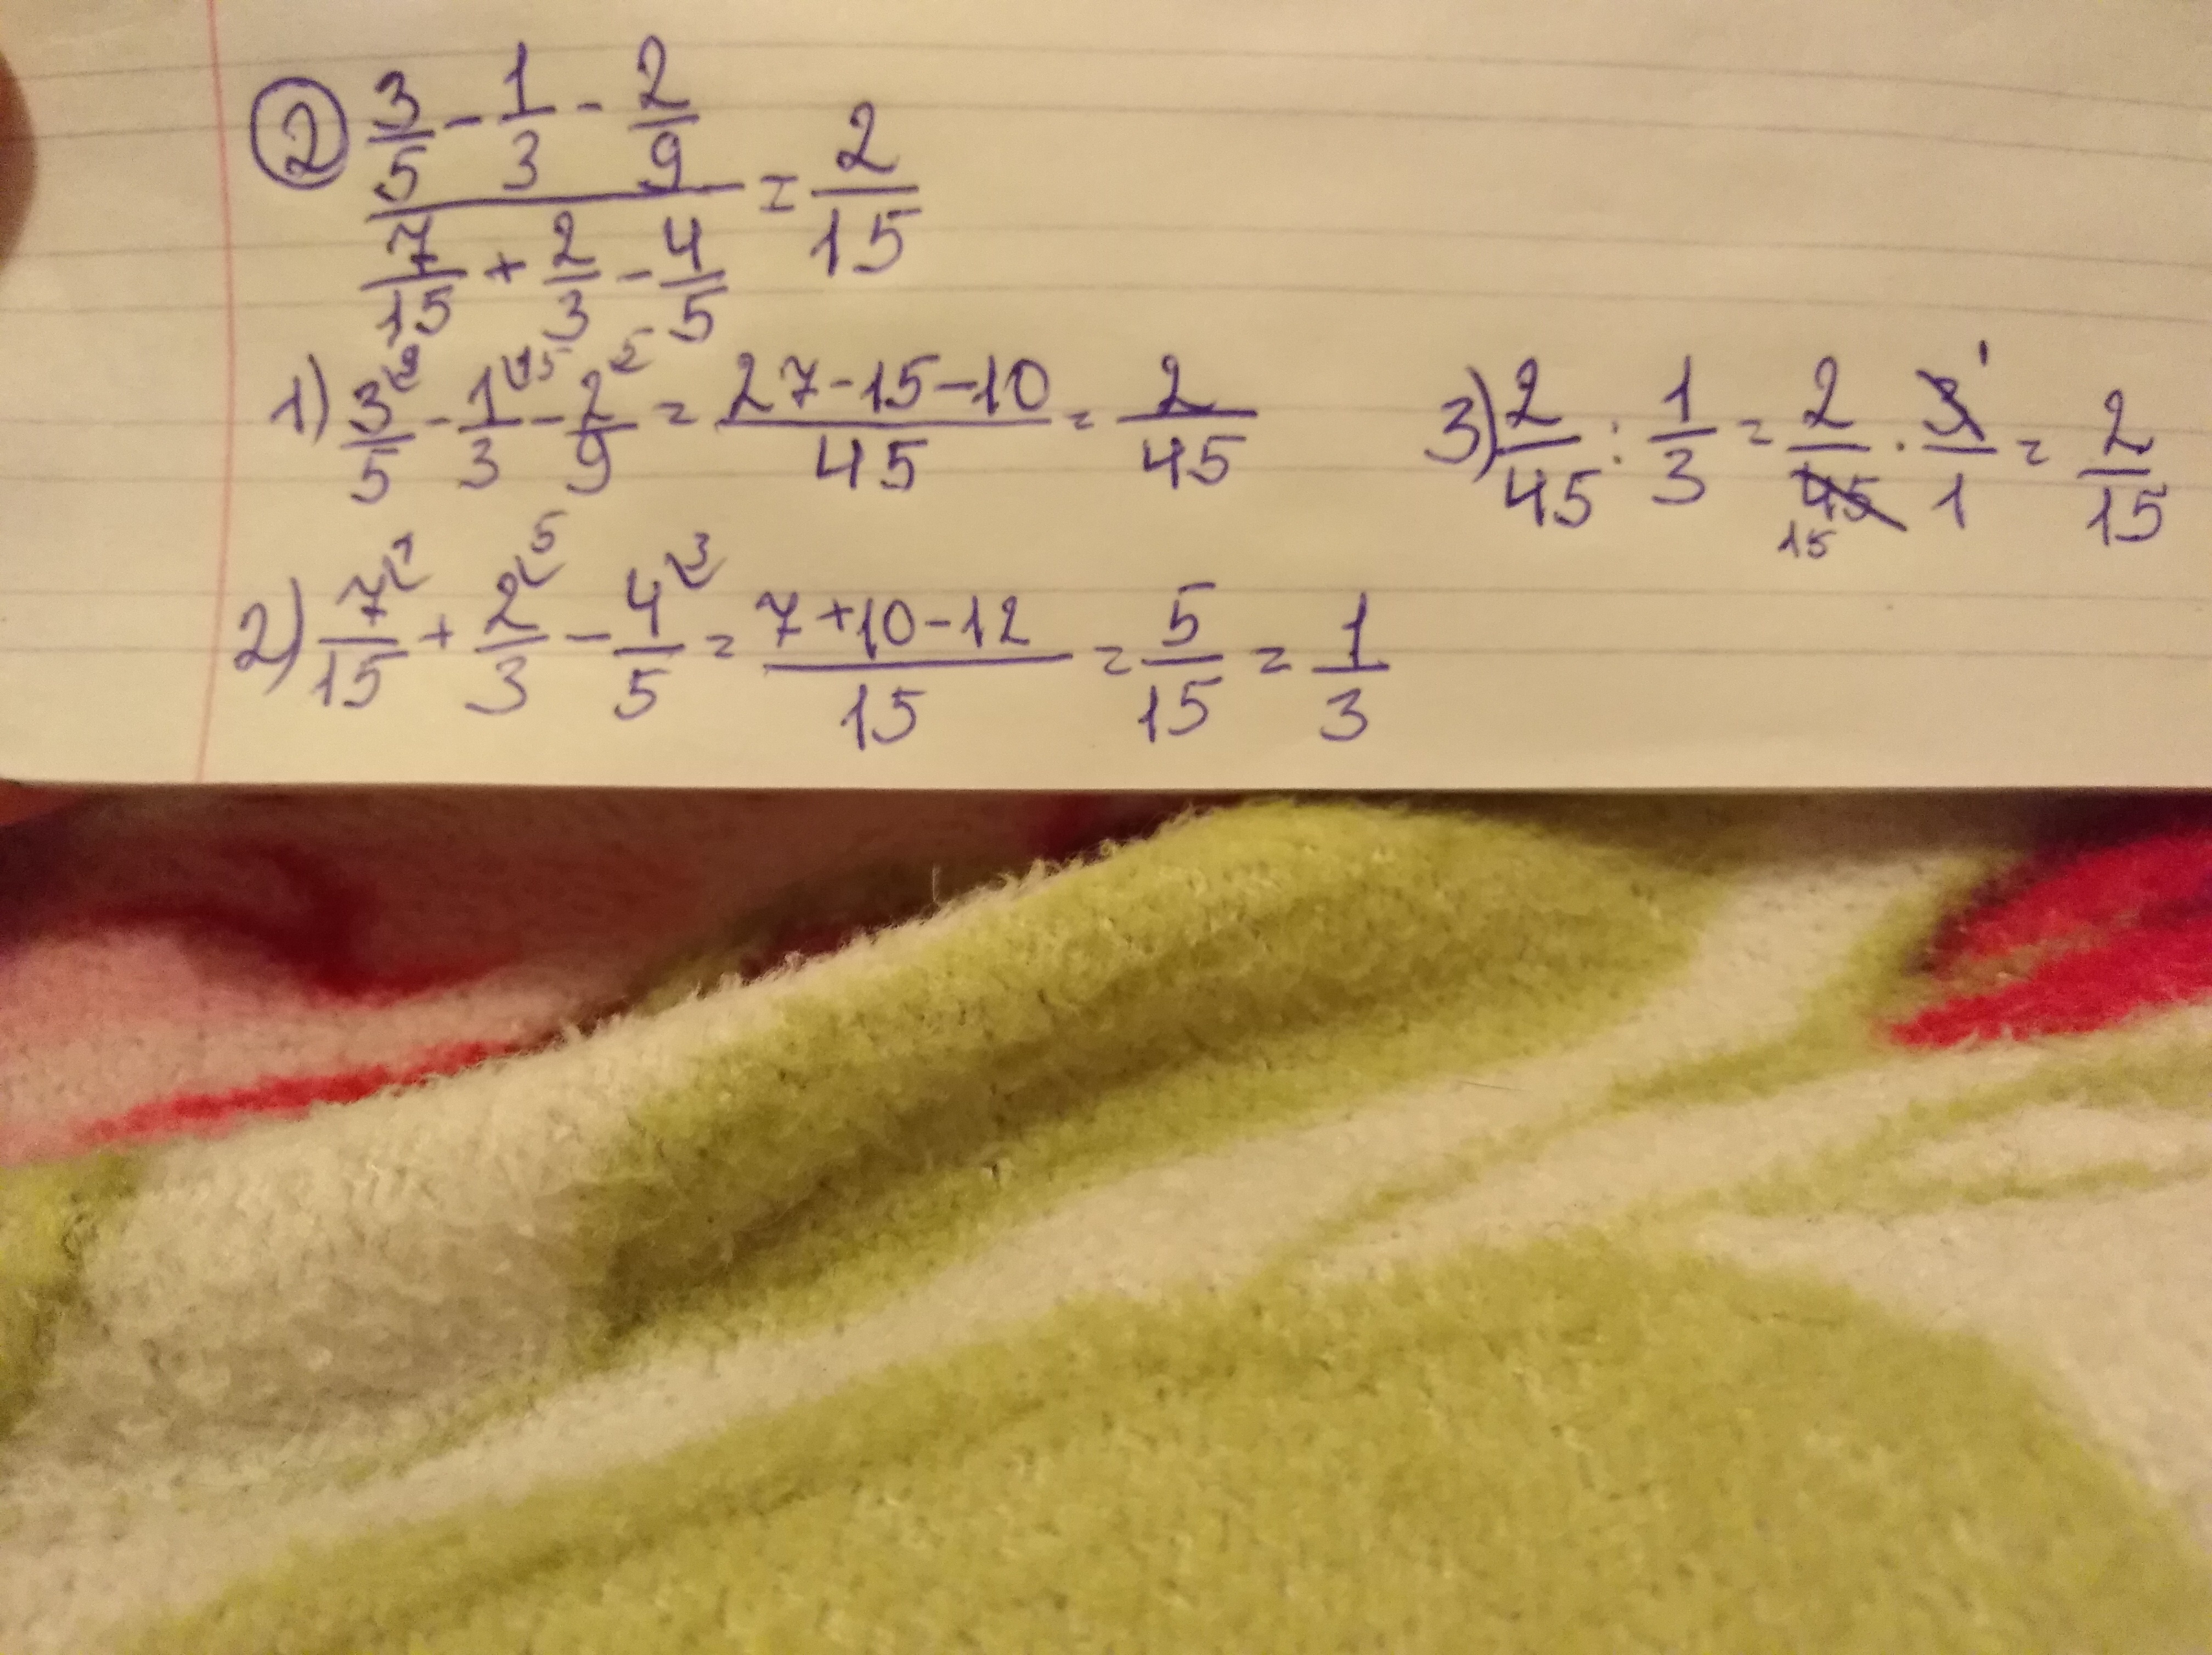 ② (3/5 - 1/3 - 2/9) / (7/15 + 2/3 - 4/5) = 2/15
1) 3/5 ⁹ - 1/3 ¹⁵ - 2/9 ⁵ = (27-15-10)/45 = 2/45
3) 2/45 : 1/3 = 2/45 ₁₅ · 3/1 ¹ = 2/15
2) 7/15 ¹ + 2/3 ⁵ - 4/5 ³ = (7+10-12)/15 = 5/15 = 1/3